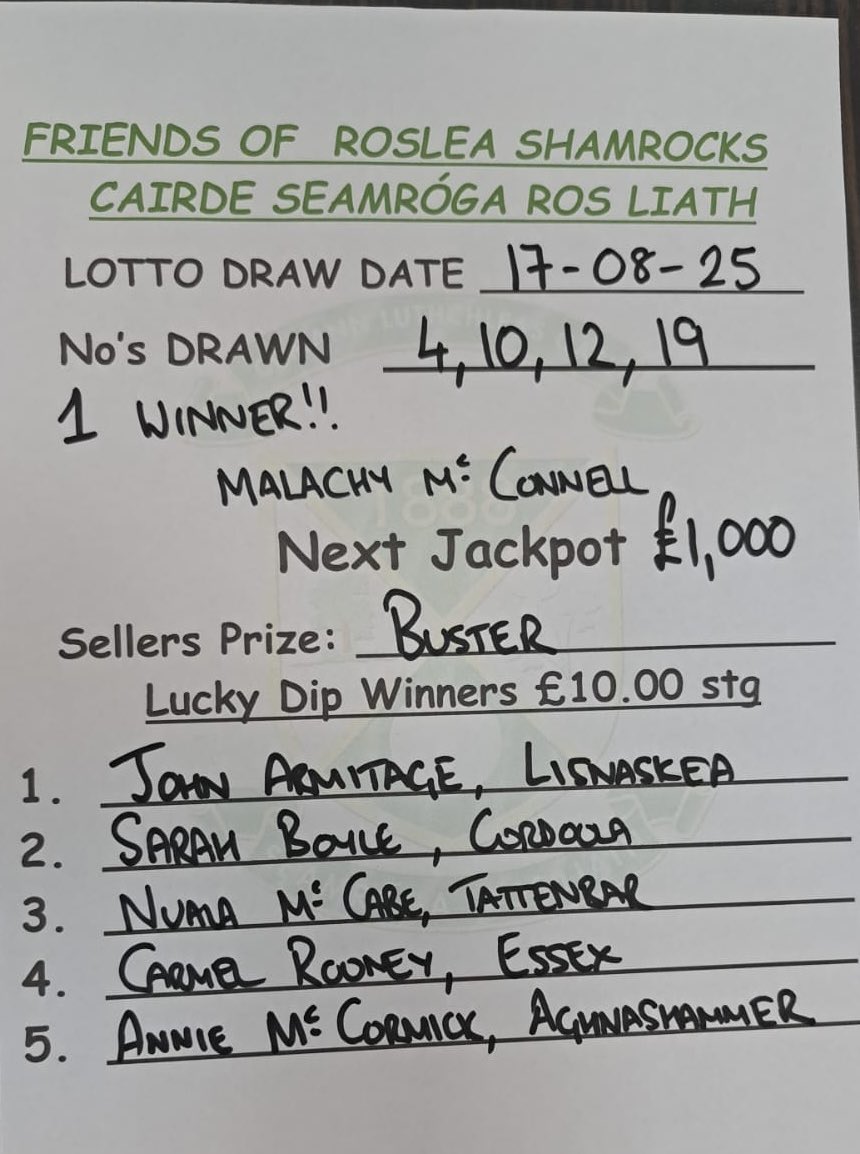 FRIENDS OF ROSLEA SHAMROCKS
CAIRDE SEAMRÓGA ROS LIATH
LOTTO DRAW DATE 17-08-25
No's DRAWN 4, 10, 12, 19
1 WINNER!!
MALACHY Mc CONNELL
1888
Next Jackpot £1,000
Sellers Prize: BUSTER
Lucky Dip Winners £10.00 stg
1. JOHN ARMITAGE, LISNASKEA
2. SARAH BOYLE, CORDOOLA
3. NUALA Mc CABE, TATTENBAR
4. CARMEL ROONEY, ESSEX
5. ANNIE Mc CORMICK, AGHNASHAMMER